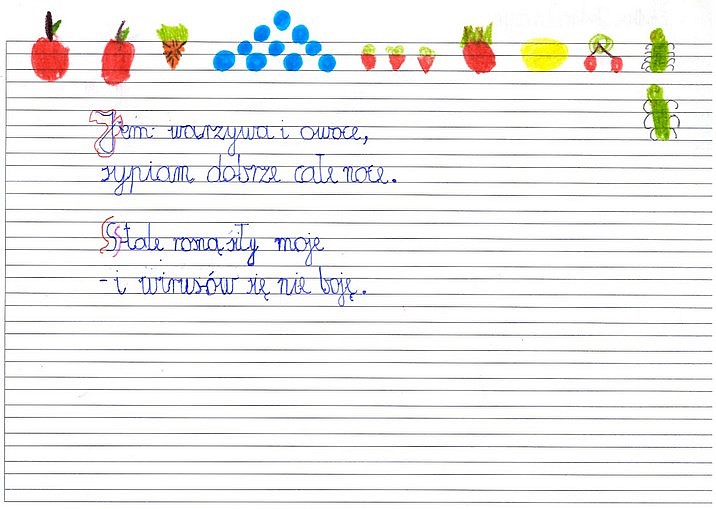 Jem warzywa i owoce,
sypiam dobrze całe noce.
Stale rosną siły moje
- i wirusów się nie boję.